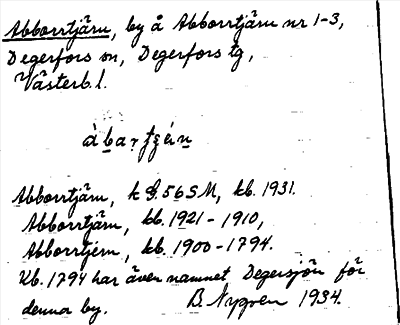 Abborrtjärn, by å Abborrtjärn nr 1-3,
Degerfors sn, Degerfors tg,
Västerb. l.
Abborrtjärn, kb. 1931.
Abborrtjärn, kb. 1921-1910,
Abborrtjern, kb. 1900-1794.
Kb. 1794 har även namnet Degersjön för
denna by. B. Nygren 1934.